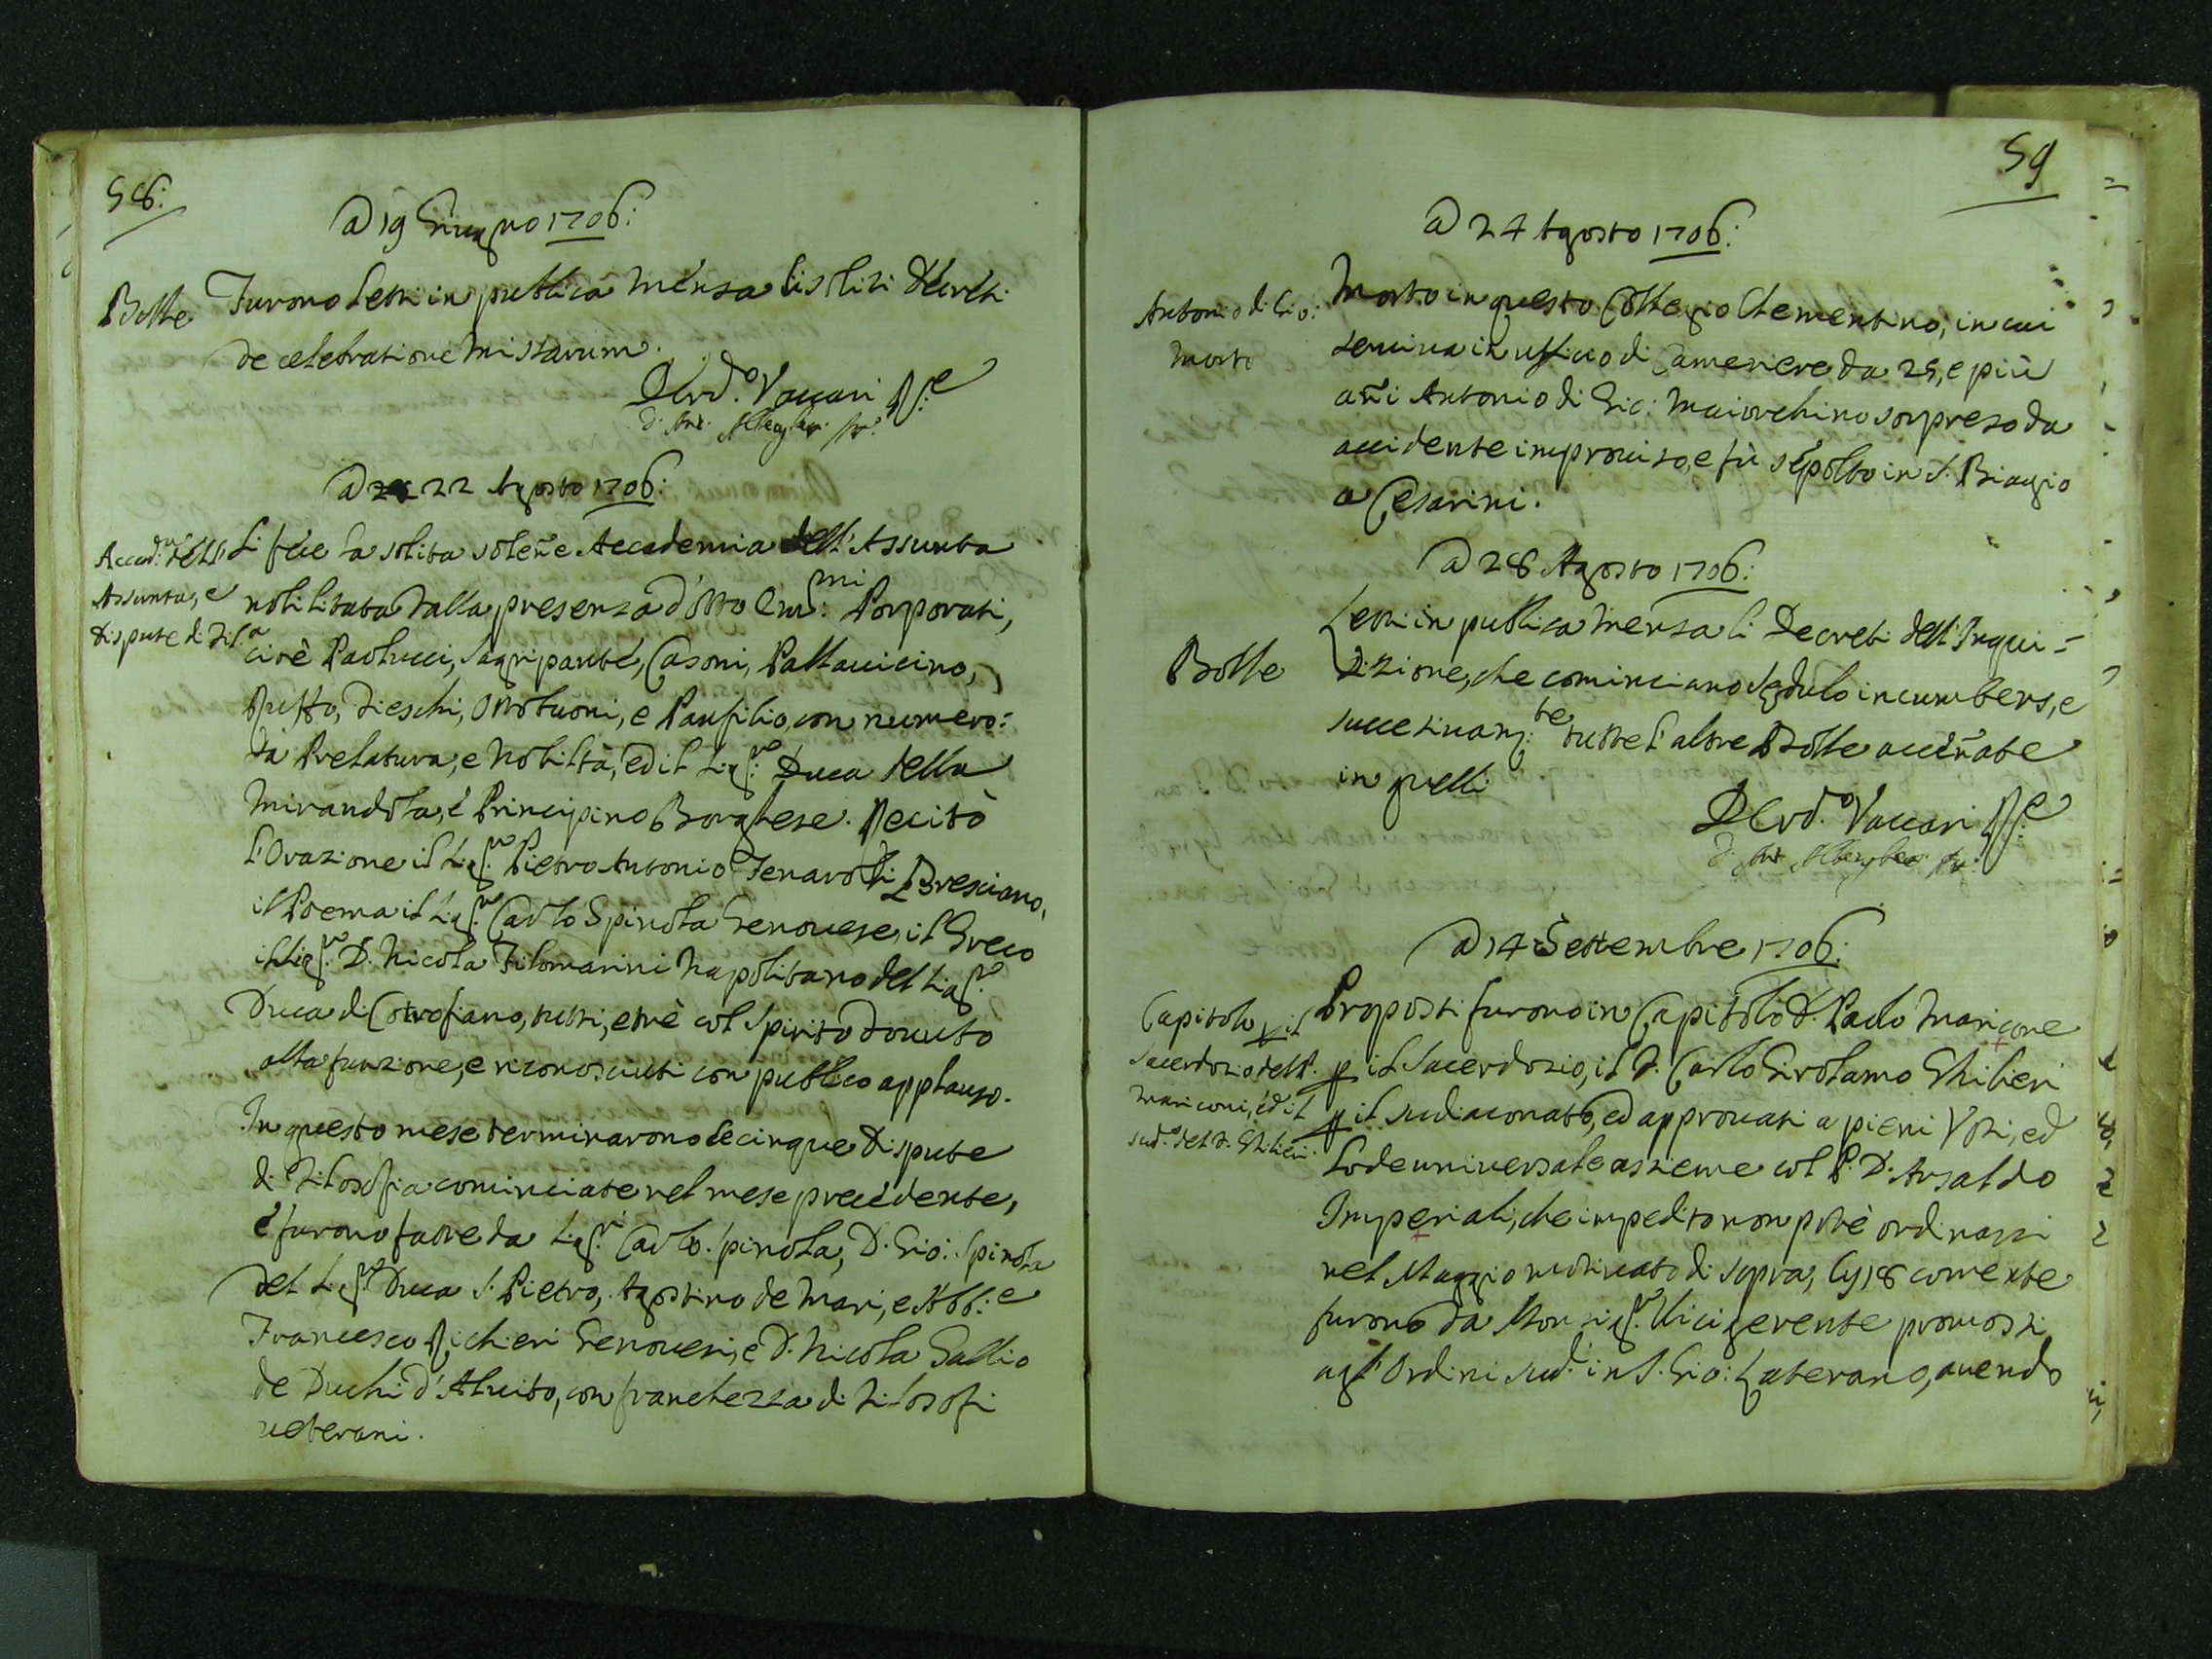 58:
A 19 Giugno 1706:
Bolle
Furono letti in publica mensa li soliti Decreti
de celebratione Missarum.
D. Ord.o Vaccari R.e
A 22 Agosto 1706:
Accad.a dell'
Assunta, e
Dispute di Fil.a
Si fece la solita soleñe Accademia dell'Assunta
nobilitata dalla presenza d'otto Em.mi Porporati,
cioè Paolucci, Sagripante, Casoni, Pallavicino,
Ruffo, Fieschi, Ottoboni, e Panfilio, con numero:
sa Prelatura, e Nobiltà, ed il Sig.re Duca della
Mirandola, e Principino Borghese. Recitò
l'Orazione il Sig.re Pietro Antonio Fenaroli Bresciano,
il Poema il Sig.re Carlo Spinola Genovese, il Greco
il Sig.re D. Nicola Filomarini Napolitano del Sig.re
Duca di Cotrofiano, tutti, e trè col spirito dovuto
alla funzione, e riconosciuti con publico applauso.
In questo mese terminarono le cinque Dispute
di Filosofia cominciate nel mese precedente,
e furono fatte da Sig.ri Carlo Spinola, D. Gio: Spinola
del Sig.re Duca S. Pietro, Agostino de Mari, e Abb.e
Francesco Richieri Genovesi, e D. Nicola Gallio
de Duchi d'Alvito, con franchezza di Filosofi
veterani.
59
A 24 Agosto 1706:
Antonio di Gio:
morto
Morto in questo Collegio Clementino, in cui
serviva in uffitio di Cameriere da 25, e più
añi Antonio di Gio: Maiorchino sorpreso da
accidente improviso, e fù sepolto in S. Biaggio
a Cesarini.
A 28 Agosto 1706:
Bolle
Letti in publica mensa li Decreti dell'Inqui=
sizione, che cominciano Sedulo incumbens, e
successivam:te tutte l'altre Bolle acceñate
in quelli
D. Ord.o Vaccari R.e
A 14 Settembre 1706:
Capitolo p il
Sacerdozio del P.
Mariconi, ed il
Sud.o del P. Ghilieri
Proposti furono in Capitolo D. Paolo Maricone
p il Sacerdozio, il D. Carlo Girolamo Ghilieri
p il sudiaconato, ed approvati a pieni Voti, ed
lode universale assieme col P. D. Ansaldo
Imperiali, che impedito non potè ordinarsi
nel Maggio motivato di sopra, 18 corrente
furono da Monsig.re Vicigerente promossi
agl'Ordini Sud.i in S. Gio: Laterano, avendo